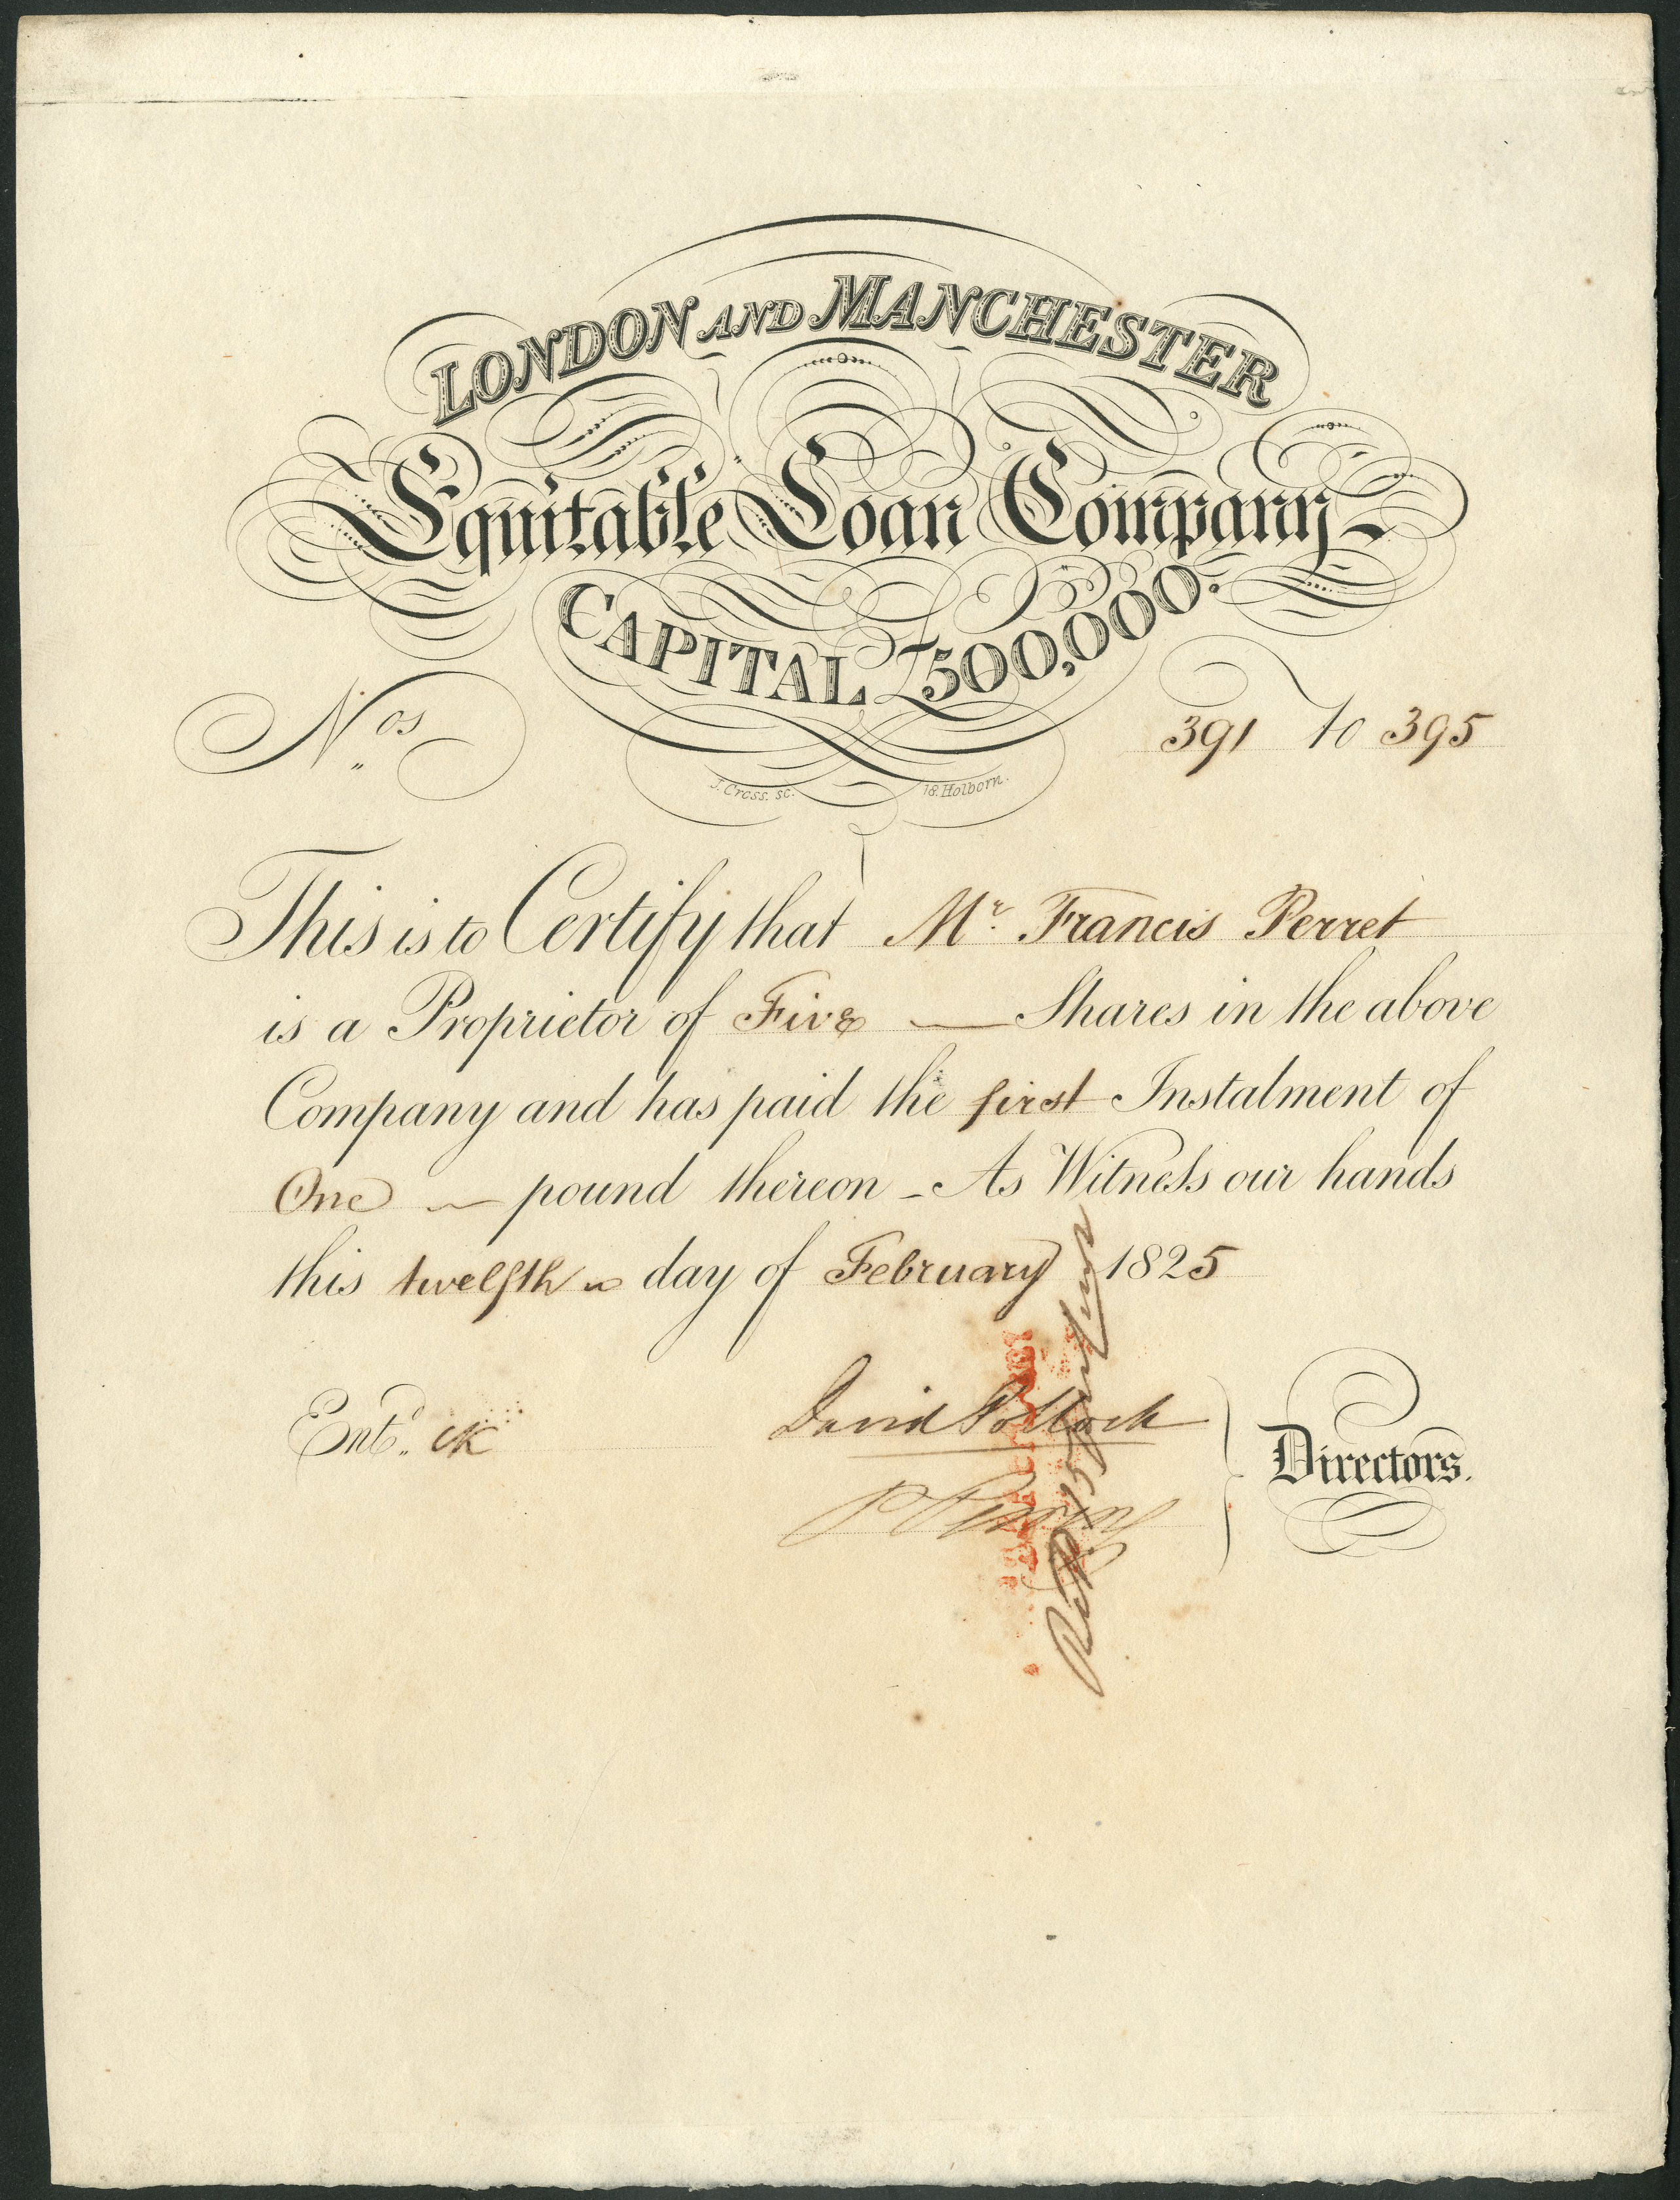 LONDON AND MANCHESTER
Equitable Loan Company
CAPITAL £500,000.
Nos 391 to 395
J. Cross. sc. 18. Holborn.
This is to Certify that Mr. Francis Perret
is a Proprietor of Five Shares in the above
Company and has paid the first Instalment of
One pound thereon - As Witness our hands
this twelfth day of February 1825
Entd. CK
David Pollock
Directors.